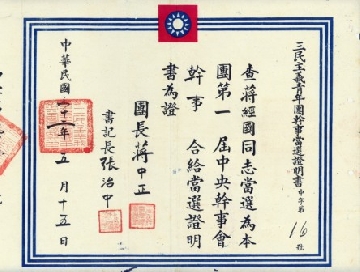 三民主義青年團幹事當選證明書 中字第16號
查蔣經國同志當選為本
團第一屆中央幹事會
幹事 合給當選證明
書為證
團長蔣中正
書記長張治中
中華民國三十二年五月十五日